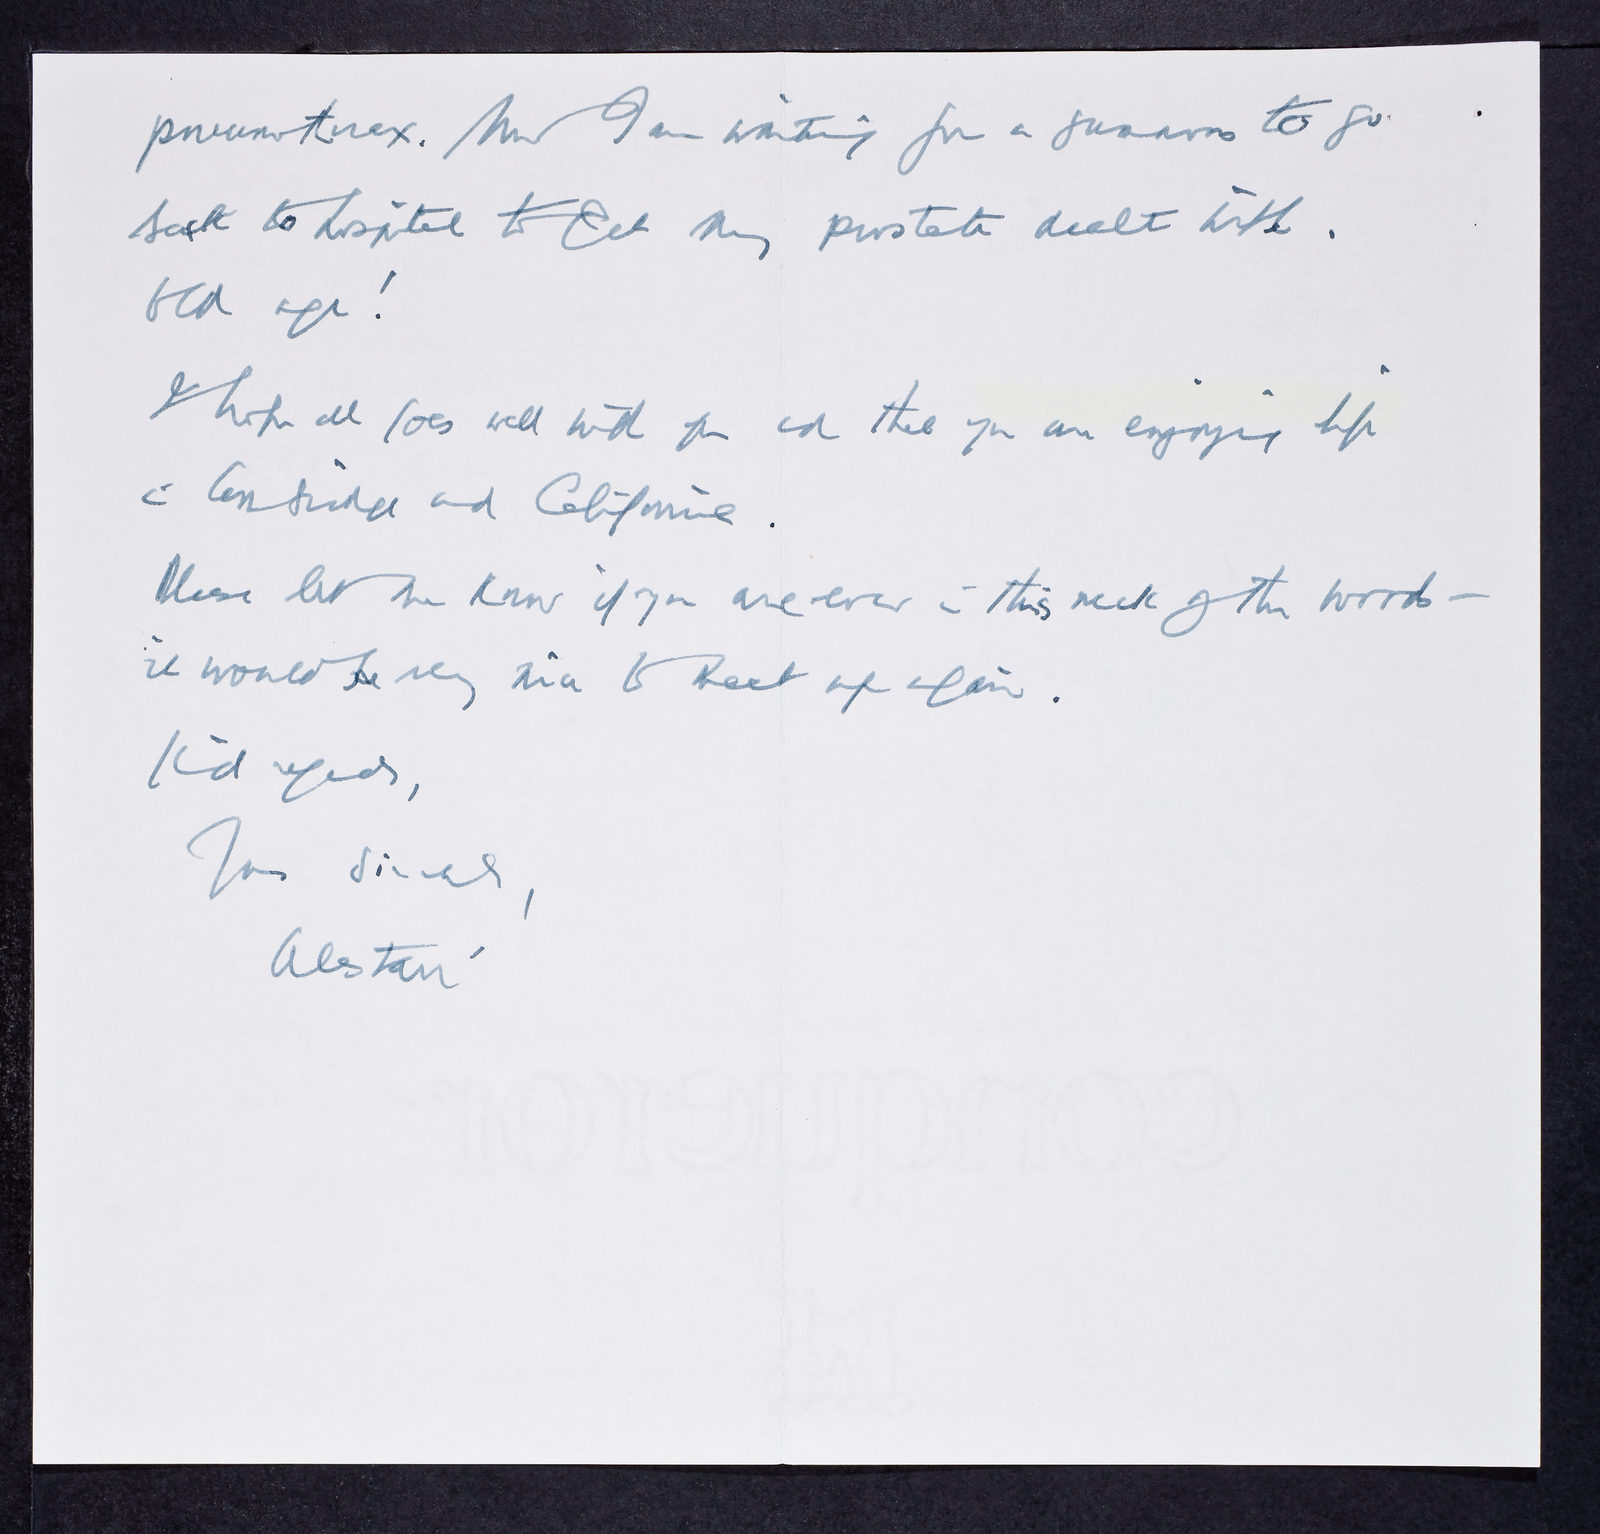 pneumothorax. Now I am waiting for a summons to go
back to hospital to get my prostate dealt with.
Old age!
I hope all goes well with you and that you are enjoying life
in Cambridge and California.
Please let me know if you are ever in this neck of the woods —
it would be very nice to meet up again.
Kind regards,
Yours sincerely,
Alastair
conqueror